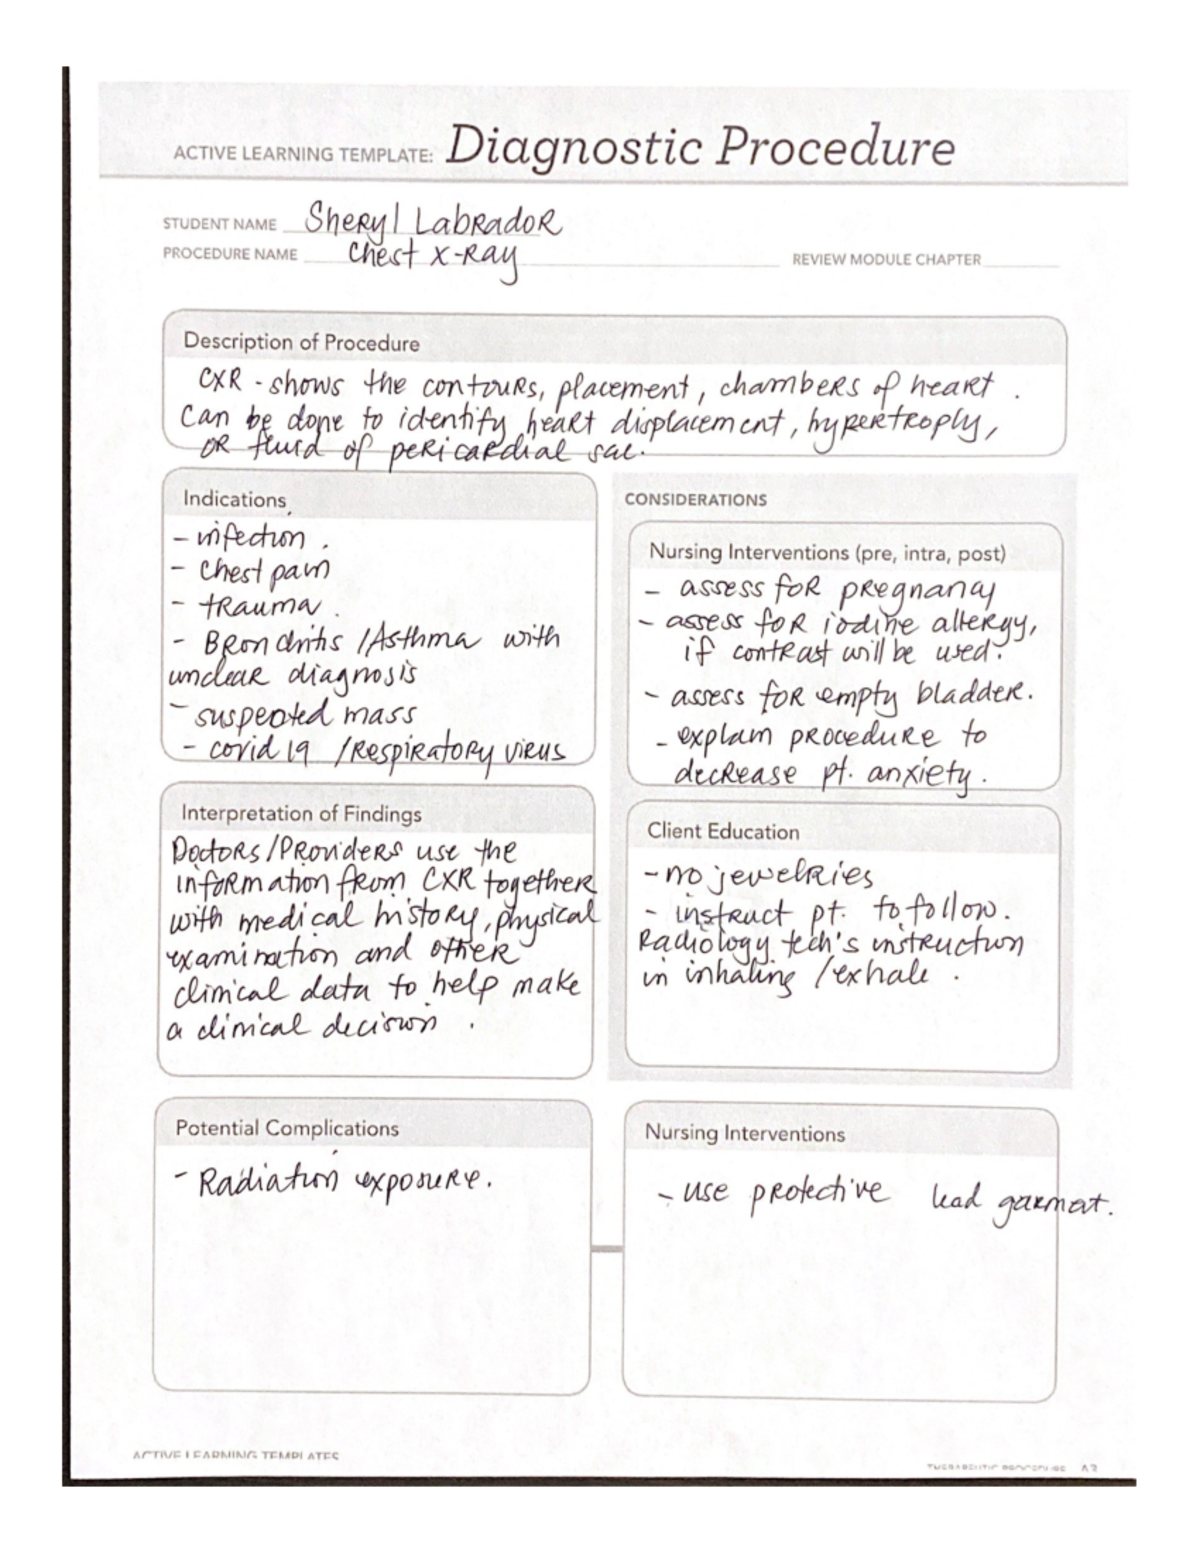 ACTIVE LEARNING TEMPLATE: Diagnostic Procedure
STUDENT NAME Sheryl Labrador
PROCEDURE NAME Chest X-Ray
REVIEW MODULE CHAPTER
Description of Procedure
CXR - shows the contours, placement, chambers of heart.
Can be done to identify heart displacement, hypertroply,
or fluid of pericardial sac.
Indications
- infection.
- Chest pain
- trauma.
- Bronchitis / Asthma with
unclear diagnosis
- suspected mass
- covid 19 / Respiratory virus
CONSIDERATIONS
Nursing Interventions (pre, intra, post)
- assess for pregnancy
- assess for iodine allergy,
if contrast will be used.
- assess for empty bladder.
- explain procedure to
decrease pt. anxiety.
Interpretation of Findings
Doctors/Providers use the
information from CXR together
with medical history, physical
examination and other
clinical data to help make
a clinical decision.
Client Education
- no jewelries
- instruct pt. to follow.
Radiology tech's instruction
in inhaling / exhale.
Potential Complications
- Radiation exposure.
Nursing Interventions
- use protective lead garment.
ACTIVE LEARNING TEMPLATES